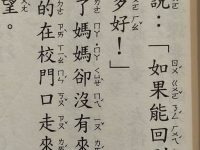 說：「如果能回
多好！」
了媽媽卻沒有來
的在校門口走來
望。